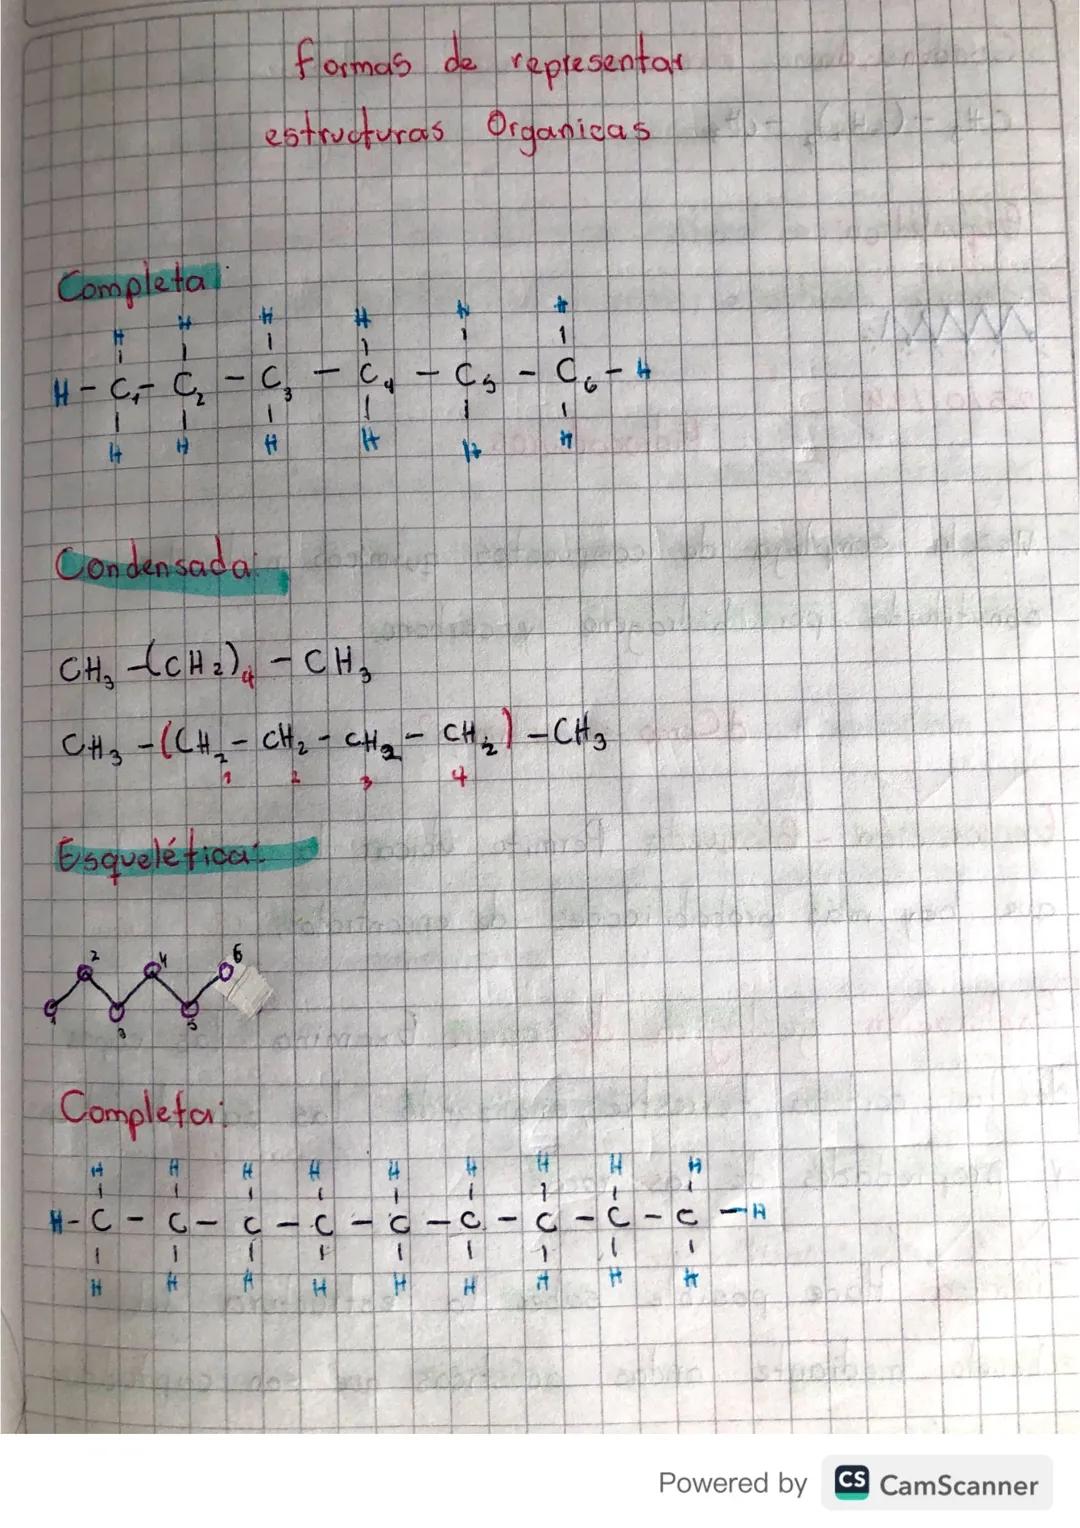 formas de representar
estructuras Organicas
Completa:
H H H H H H
H - C1 - C2 - C3 - C4 - C5 - C6 - H
H H H H H H
Condensada:
CH3 -(CH2)4 - CH3
CH3 -(CH2 - CH2 - CH2 - CH2) - CH3
1 2 3 4
Esquelética:
2 4 6
1 3 5
Completa:
H H H H H H H H H
H - C - C - C - C - C - C - C - C - C - H
H H H H H H H H H
Powered by CS CamScanner